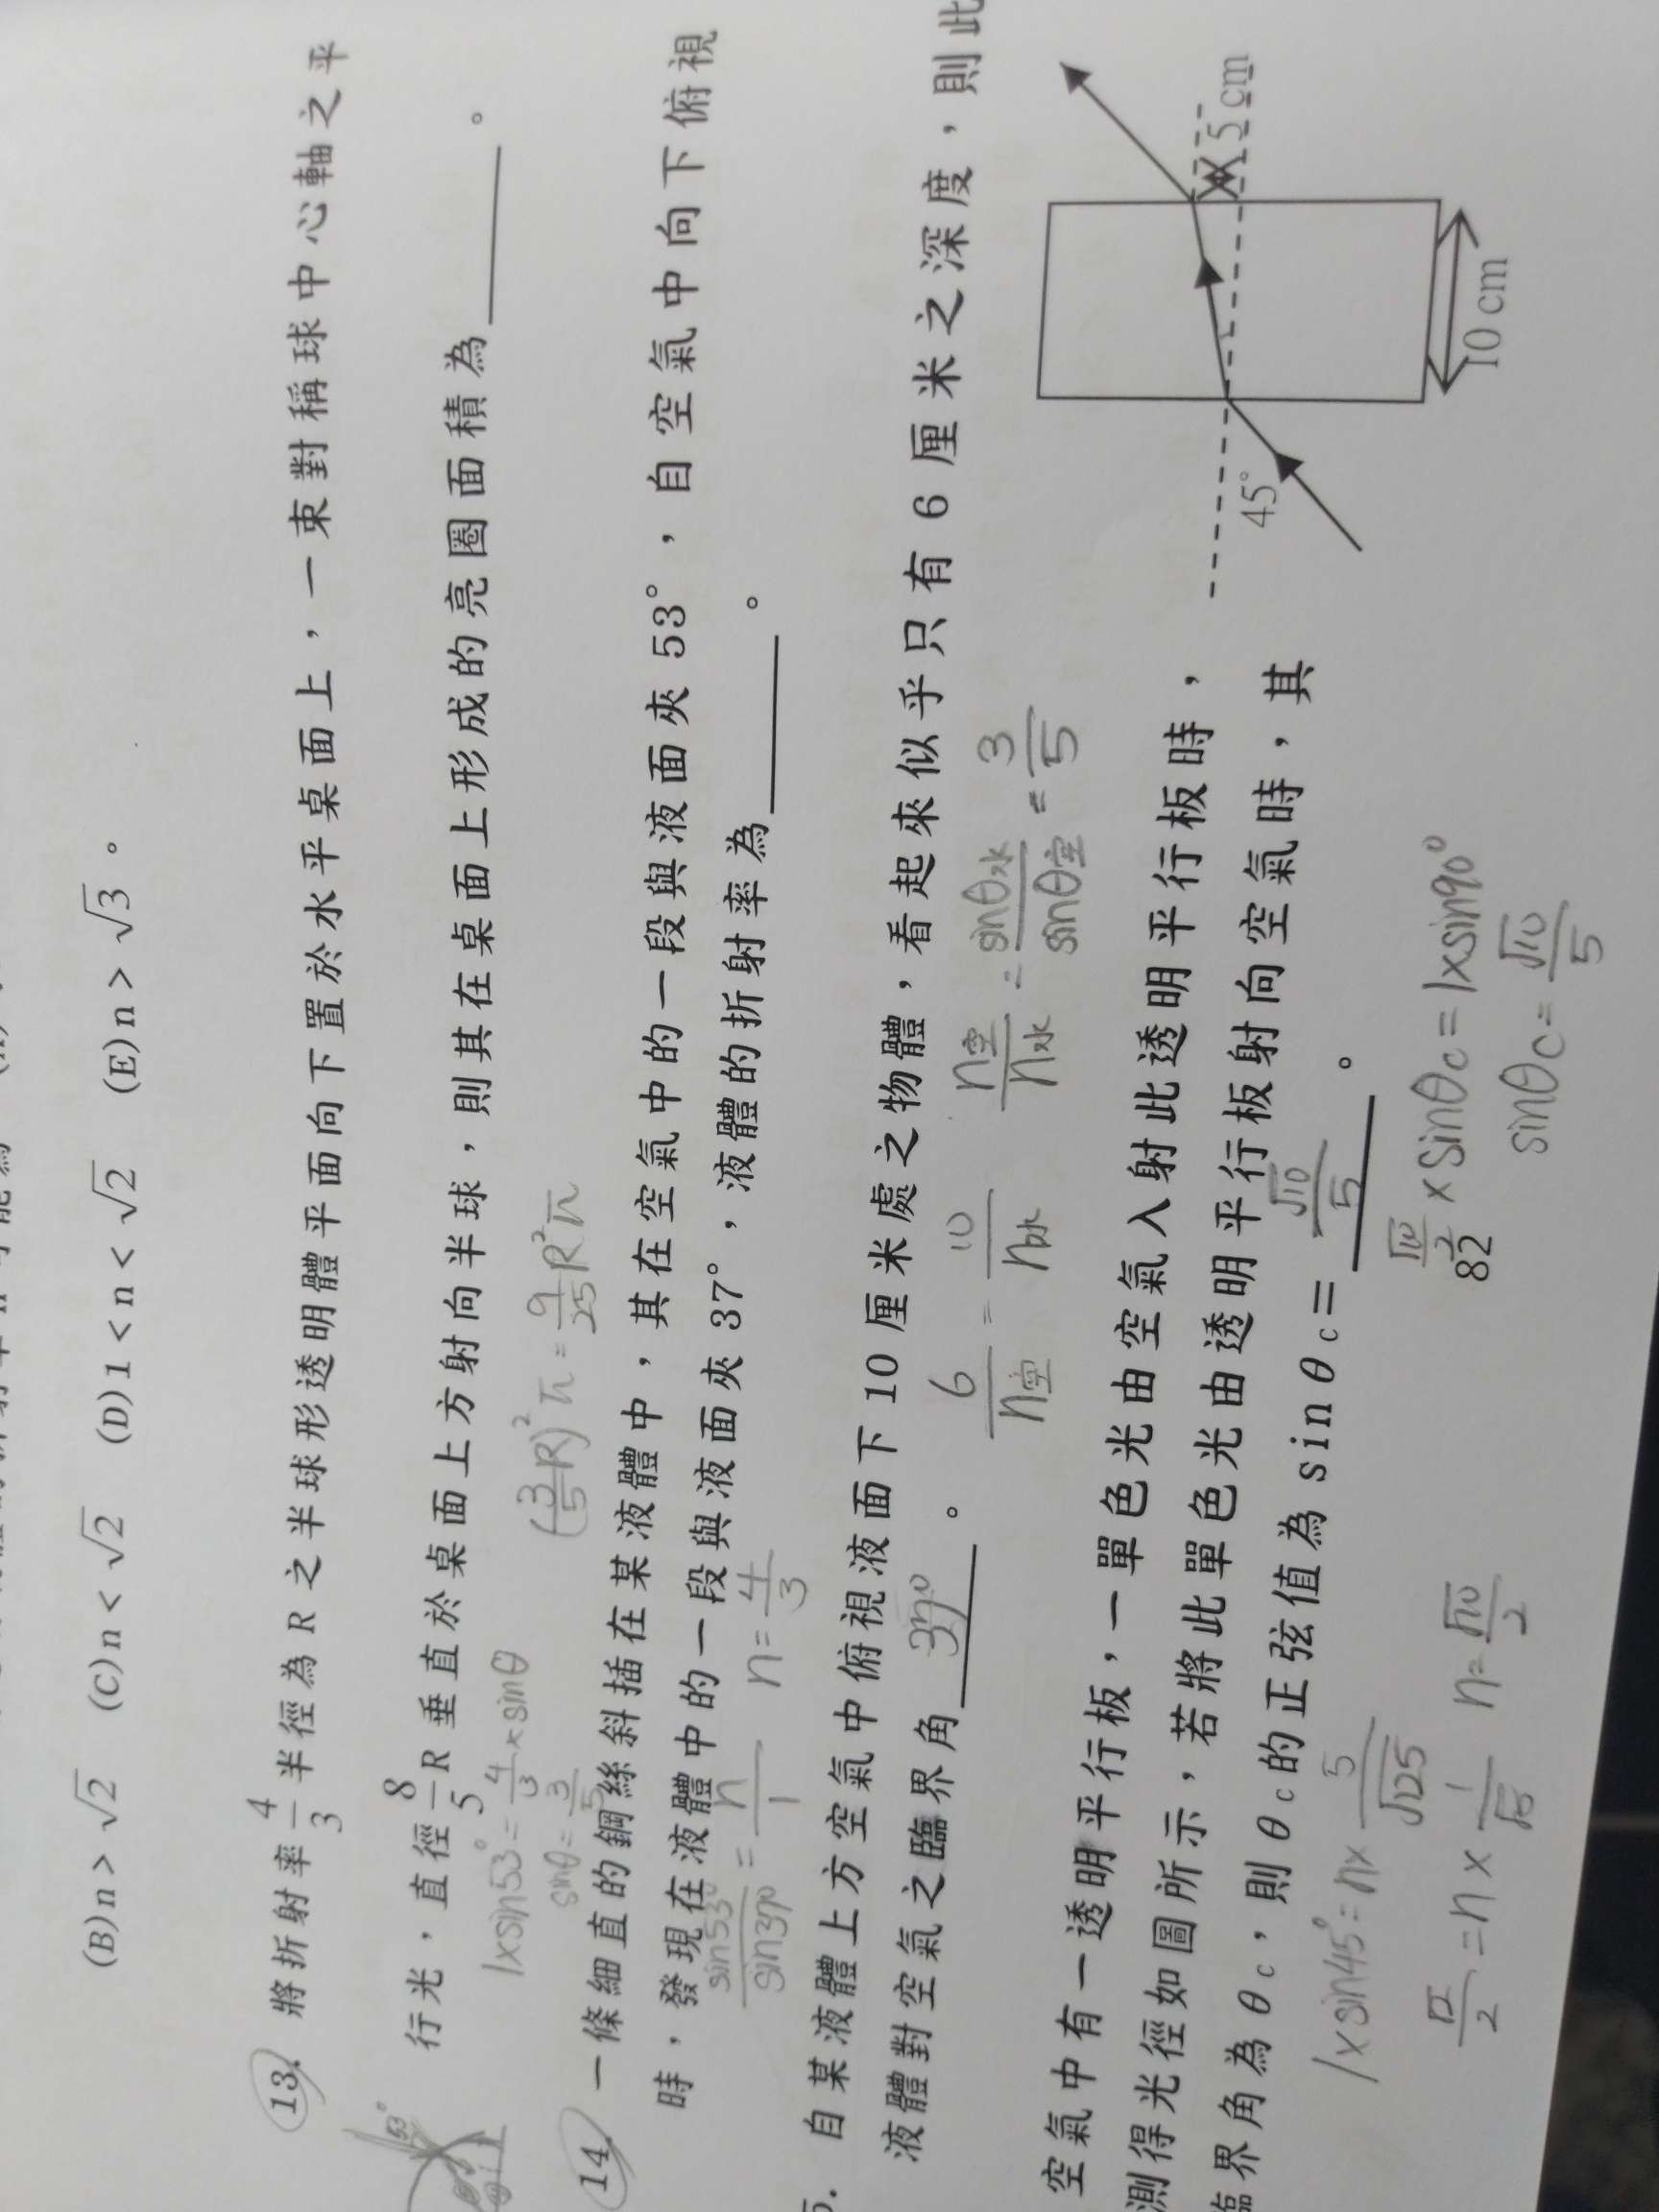 (B)n > √2  (C)n < √2  (D)1 < n < √2  (E)n > √3 。
13. 將折射率4/3半徑為R之半球形透明體平面向下置於水平桌面上，一束對稱球中心軸之平
行光，直徑8/5R垂直於桌面上方射向半球，則其在桌面上形成的亮圈面積為______。
53°
1×sin53°=4/3×sinθ
sinθ=3/5
(3/5R)²π=9/25R²π
14. 一條細直的鋼絲斜插在某液體中，其在空氣中的一段與液面夾53°，自空氣中向下俯視
時，發現在液體中的一段與液面夾37°，液體的折射率為______。
sin53°/sin37°=n/1  n=4/3
5. 自某液體上方空氣中俯視液面下10厘米處之物體，看起來似乎只有6厘米之深度，則此
液體對空氣之臨界角 37° 。
6/n空=10/n水  n空/n水=sinθ水/sinθ空=3/5
空氣中有一透明平行板，一單色光由空氣入射此透明平行板時，
測得光徑如圖所示，若將此單色光由透明平行板射向空氣時，其
臨界角為θc，則θc的正弦值為sinθc= √10/5 。
45°
5 cm
10 cm
1×sin45°=n×5/√125
√2/2=n×1/√5  n=√10/2
√10/2×sinθc=1×sin90°
82
sinθc=√10/5